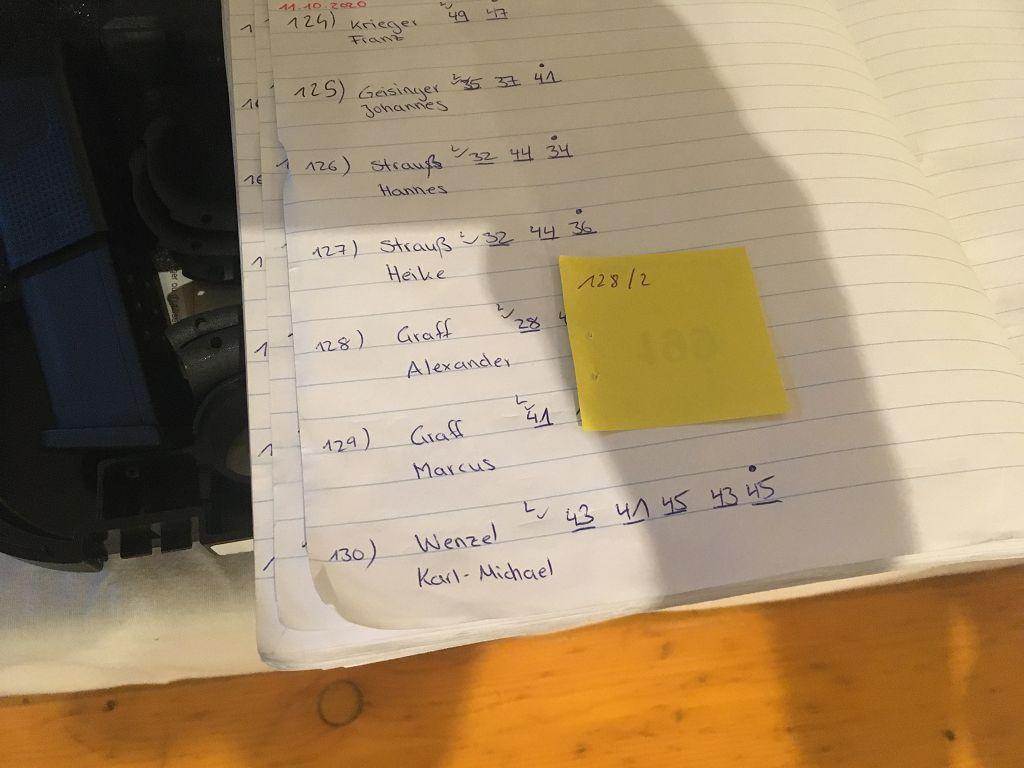 11.10.2020
124) Krieger 49 47
Franz
125) Geisinger 35 37 41
Johannes
126) Strauß 32 44 34
Hannes
127) Strauß 32 44 36
Heike
128/2
128) Graff 28
Alexander
129) Graff 41
Marcus
130) Wenzel 43 41 45 43 45
Karl-Michael